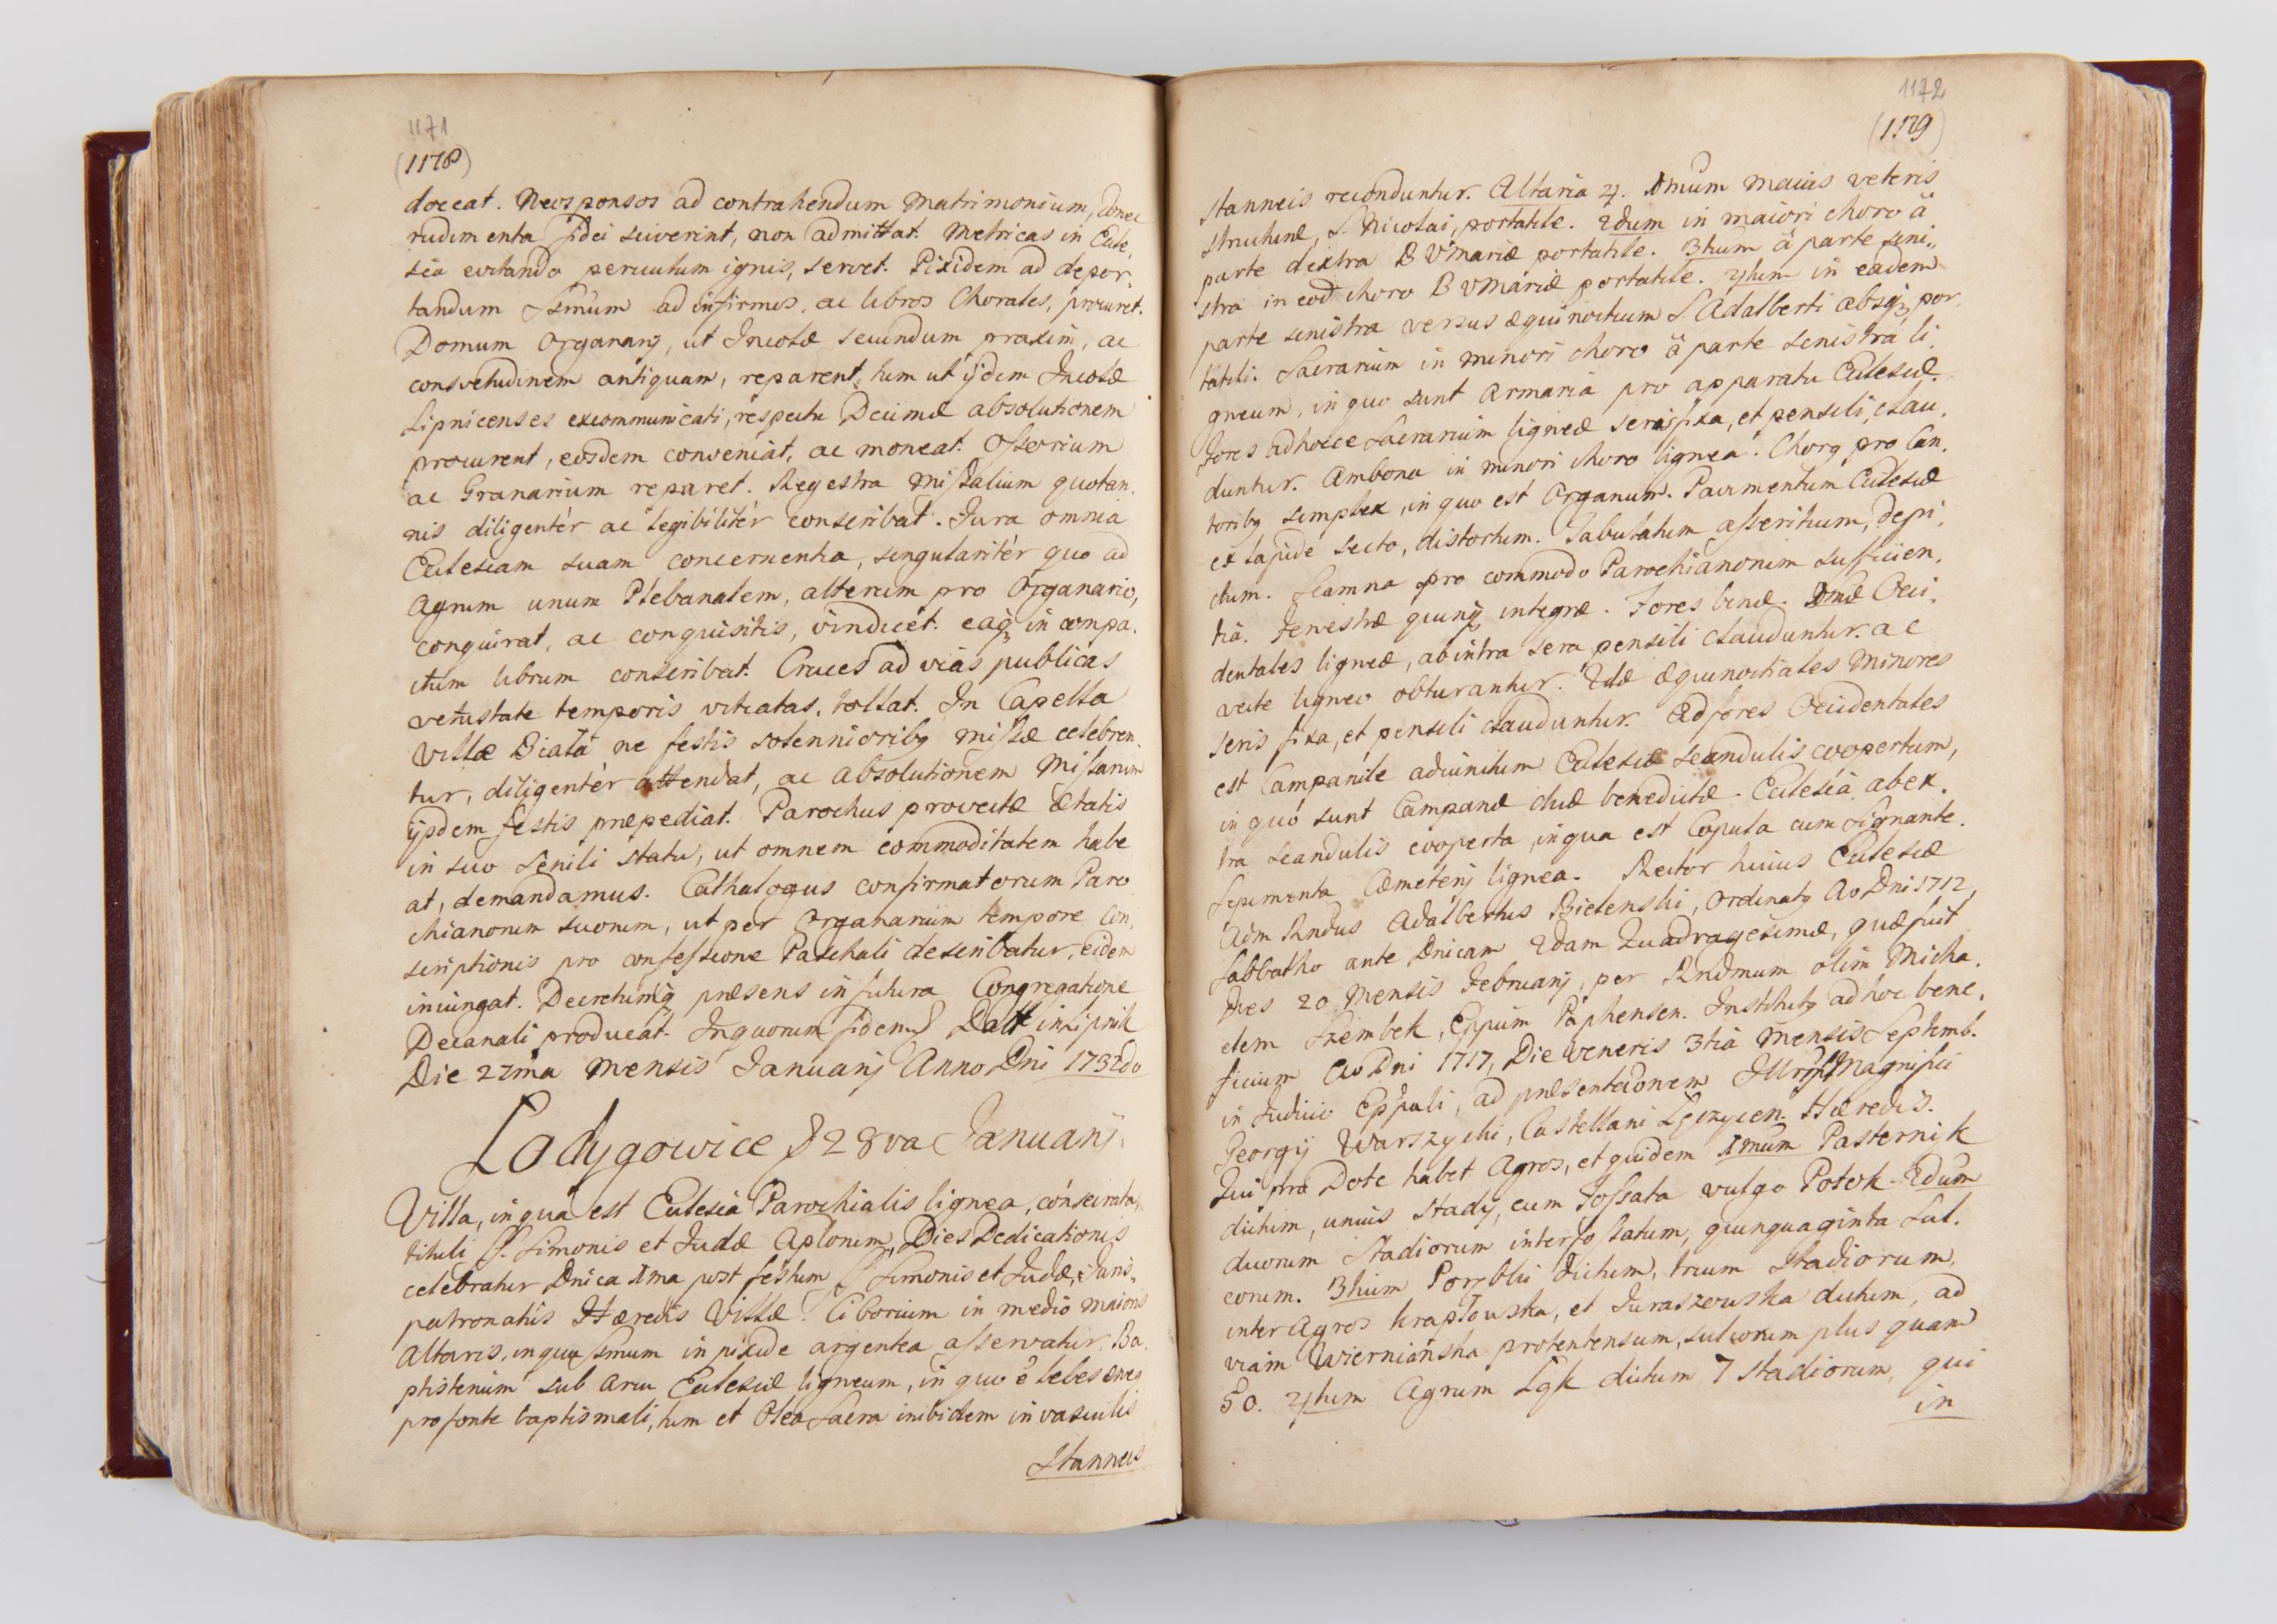 1171
(1178)
doceat. Neosponsos ad contrahendum Matrimonium, donec
rudimenta fidei sciverint, non admittat. Metricas in Eccle,
sia evitando periculum ignis, servet. Pixidem ad depor,
tandum SSmum ad infirmos, ac libros Chorales, procuret.
Domum Organarij, ut Incolæ secundum praxim, ac
consvetudinem antiquam, reparent, tum ut ijdem Incolæ
Lipnicenses excommunicati, respectu Decimæ absolutionem
procurent, eosdem conveniat, ac moneat. Ossorium
ac Granarium reparet. Regestra Missalium quotan,
nis diligentèr ac legibilitèr conscribat. Jura omnia
Ecclesiam suam concernentia, singularitèr quo ad
Agrum unum Plebanalem, alterum pro Organario,
conquirat, ac conquisitis, vindicet. eaq; in compa,
ctum librum conscribat. Cruces ad vias publicas
vetustate temporis vitiatas, tollat. In Capella
Villæ Biała ne festis solennioribq missæ celebren,
tur, diligentèr attendat, ac absolutionem Missarum
ijsdem festis præpediat. Parochus provectæ ætatis
in suo senili statu, ut omnem commoditatem habe
at, demandamus. Cathalogus confirmatorum Paro
chianorum suorum, ut per Organarium tempore Con,
scriptionis pro confessione Paschali describatur, eidem
iniungat. Decretumq; præsens in futura Congregatione
Decanali producat. In quorum fidem Datt in Lipnik
Die 27ma Mensis Januarij Anno Dni 1732do
Lodygowice D 28va Januarij.
Villa, in qua est Ecclesia Parochialis lignea, consecrata,
tituli SS. Simonis et Judæ Aplorum, Dies Dedicationis
celebratur Dnica 1ma post festum SS Simonis et Judæ, Juris,
patronatûs Hæredis Villæ. Ciborium in medio maioris
Altaris, in quo SSmum in pixide argentea asservatur. Ba,
ptisterium sub arcu Ecclesiæ ligneum, in quo ẽ lebes æneq
pro fonte baptismali, tum et Olea Sacra inibidem in vasculis
Stanneis
1172
(1179)
stanneis reconduntur. Altaria 4. 1mum maius veteris
structuræ, S. Nicolai, portatile. 2dum in maiori choro â
parte dextra B V Mariæ portatile. 3tium â parte sini,,
stra in eod choro B V Mariæ portatile. 4tum in eadem
parte sinistra versus æquinoctium S Adalberti absq; por
tatili. Sacrarium in minori choro â parte sinistra li,
gneum, in quo sunt Armaria pro apparatu Ecclesiæ.
Fores ad hocce Sacrarium ligneæ serâ fixa, et pensili, clau,
duntur. Ambona in minori choro lignea. Chorq pro Can,
toribq simplex, in quo est Organum. Pavimentum Ecclesiæ
ex lapide secto, distortum. Tabulatum asseritium, depi,
ctum. Scamna pro commodo Parochianorum sufficien,
tia. Fenestræ quinq; integræ. Fores binæ. 1mæ Occi,
dentales ligneæ, ab intra sera pensili clauduntur. ac
vecte ligneo obturantur. 2dæ æquinoctiales Minores
seris fixa, et pensili clauduntur. Ad fores Occidentales
est Campanile adiunctum Ecclesiæ scandulis coopertum,
in quo sunt Campanæ duæ benedictæ. Ecclesia ab ex,
tra scandulis cooperta, in qua est Copula cum signante.
Sepimenta Cæmeterij lignea. Rector huius Ecclesiæ
Adm Rndus Adalbertus Bielenski, Ordinatq Ao Dni 1712,
Sabbatho ante Dnicam 2dam Quadragesimæ, quæ fuit
dies 20 Mensis Februarij, per Rndmum olim Micha,
elem Szembek, Eppum Paphensen. Institutq ad hoc bene,
ficium Ao Dni 1717, Die Veneris 3tia Mensis Septemb.
in Judicio Eppali, ad præsentaonem Magnifici
Georgij Warszycki, Castellani Lęczycen. Hæredis.
Qui pro Dote habet Agros, et quidem 1mum Pasternik
dictum, unius Stadij, cum Fossata vulgo Potok. 2dum
duorum Stadiorum interfossatum, quinquaginta sul,
corum. 3tium Porębki dictum, trium Stadiorum,
inter Agros krapłouska, et Juraszouska dictum, ad
viam Wierniańska protentensum, sulcorum plus quam
50. 4tum Agrum Lgk dictum 7 Stadiorum, qui
in